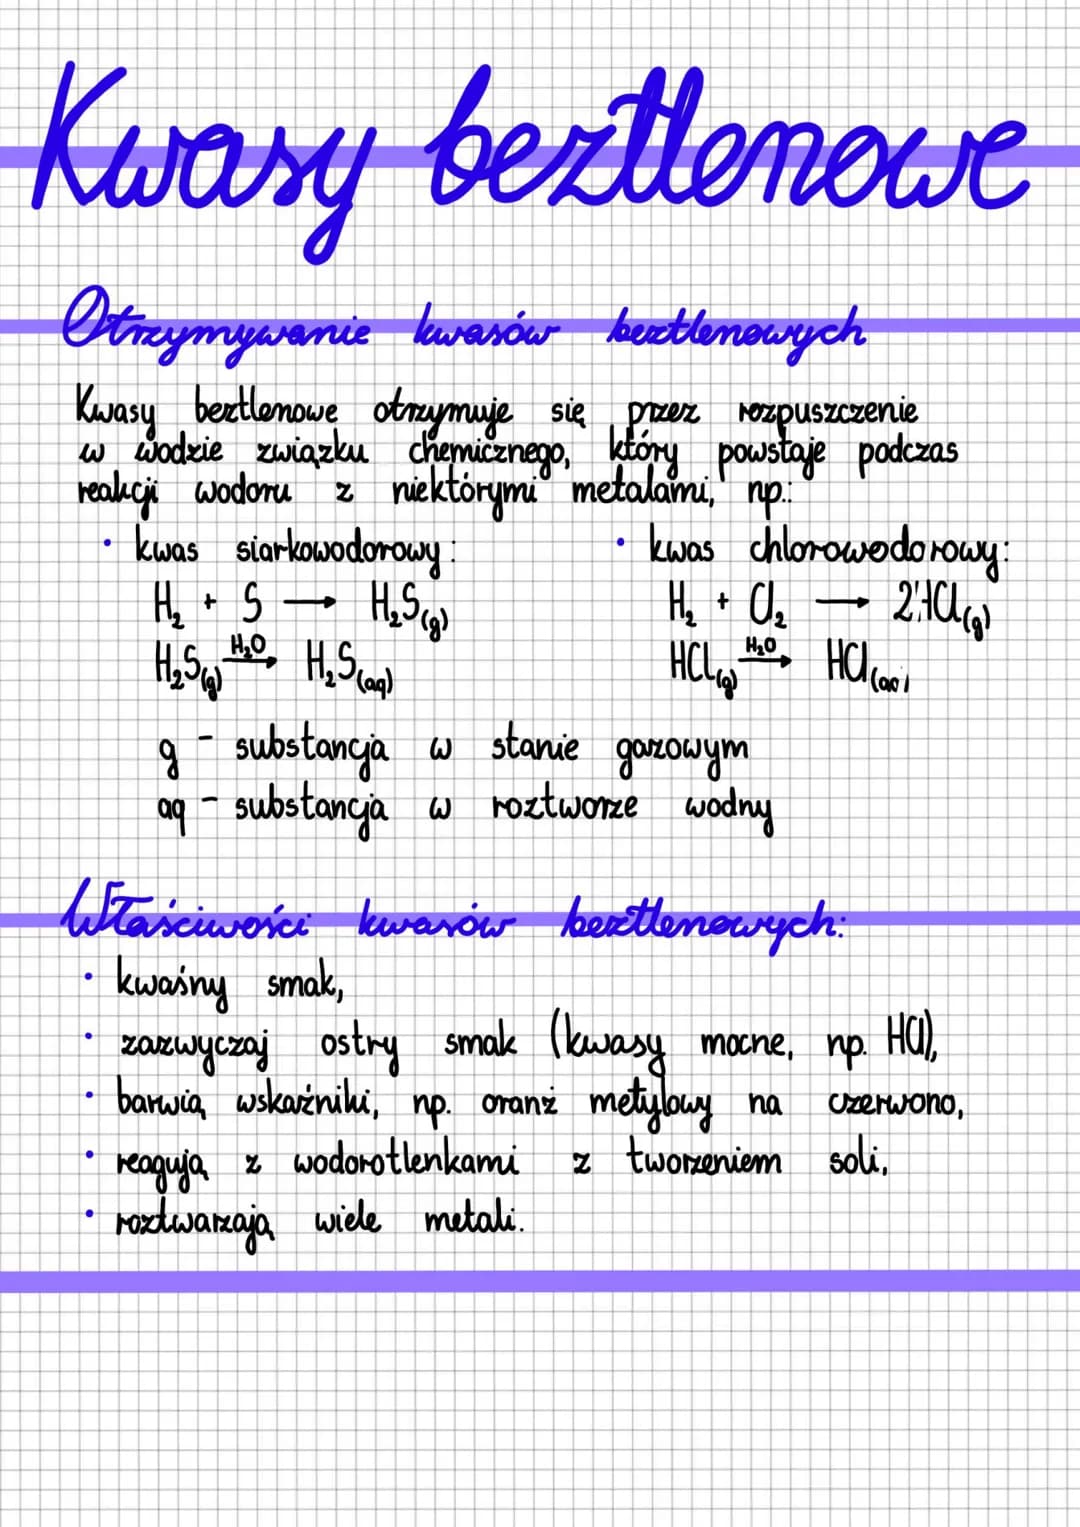 Kwasy beztlenowe
Otrzymywanie kwasów beztlenowych
Kwasy beztlenowe otrzymuje się przez rozpuszczenie
w wodzie związku chemicznego, który powstaje podczas
reakcji wodoru z niektórymi metalami, np.:
• kwas siarkowodorowy:
H₂ + S → H₂S(g)
H₂S(g) H₂O→ H₂S(aq)
• kwas chlorowodorowy:
H₂ + Cl₂ → 2HCl(g)
HCl(g) H₂O→ HCl(aq)
g - substancja w stanie gazowym
aq - substancja w roztworze wodny
Właściwości kwasów beztlenowych:
• kwaśny smak,
• zazwyczaj ostry smak (kwasy mocne, np. HCl),
• barwią wskaźniki, np. oranż metylowy na czerwono,
• reagują z wodorotlenkami z tworzeniem soli,
• roztwarzają wiele metali.